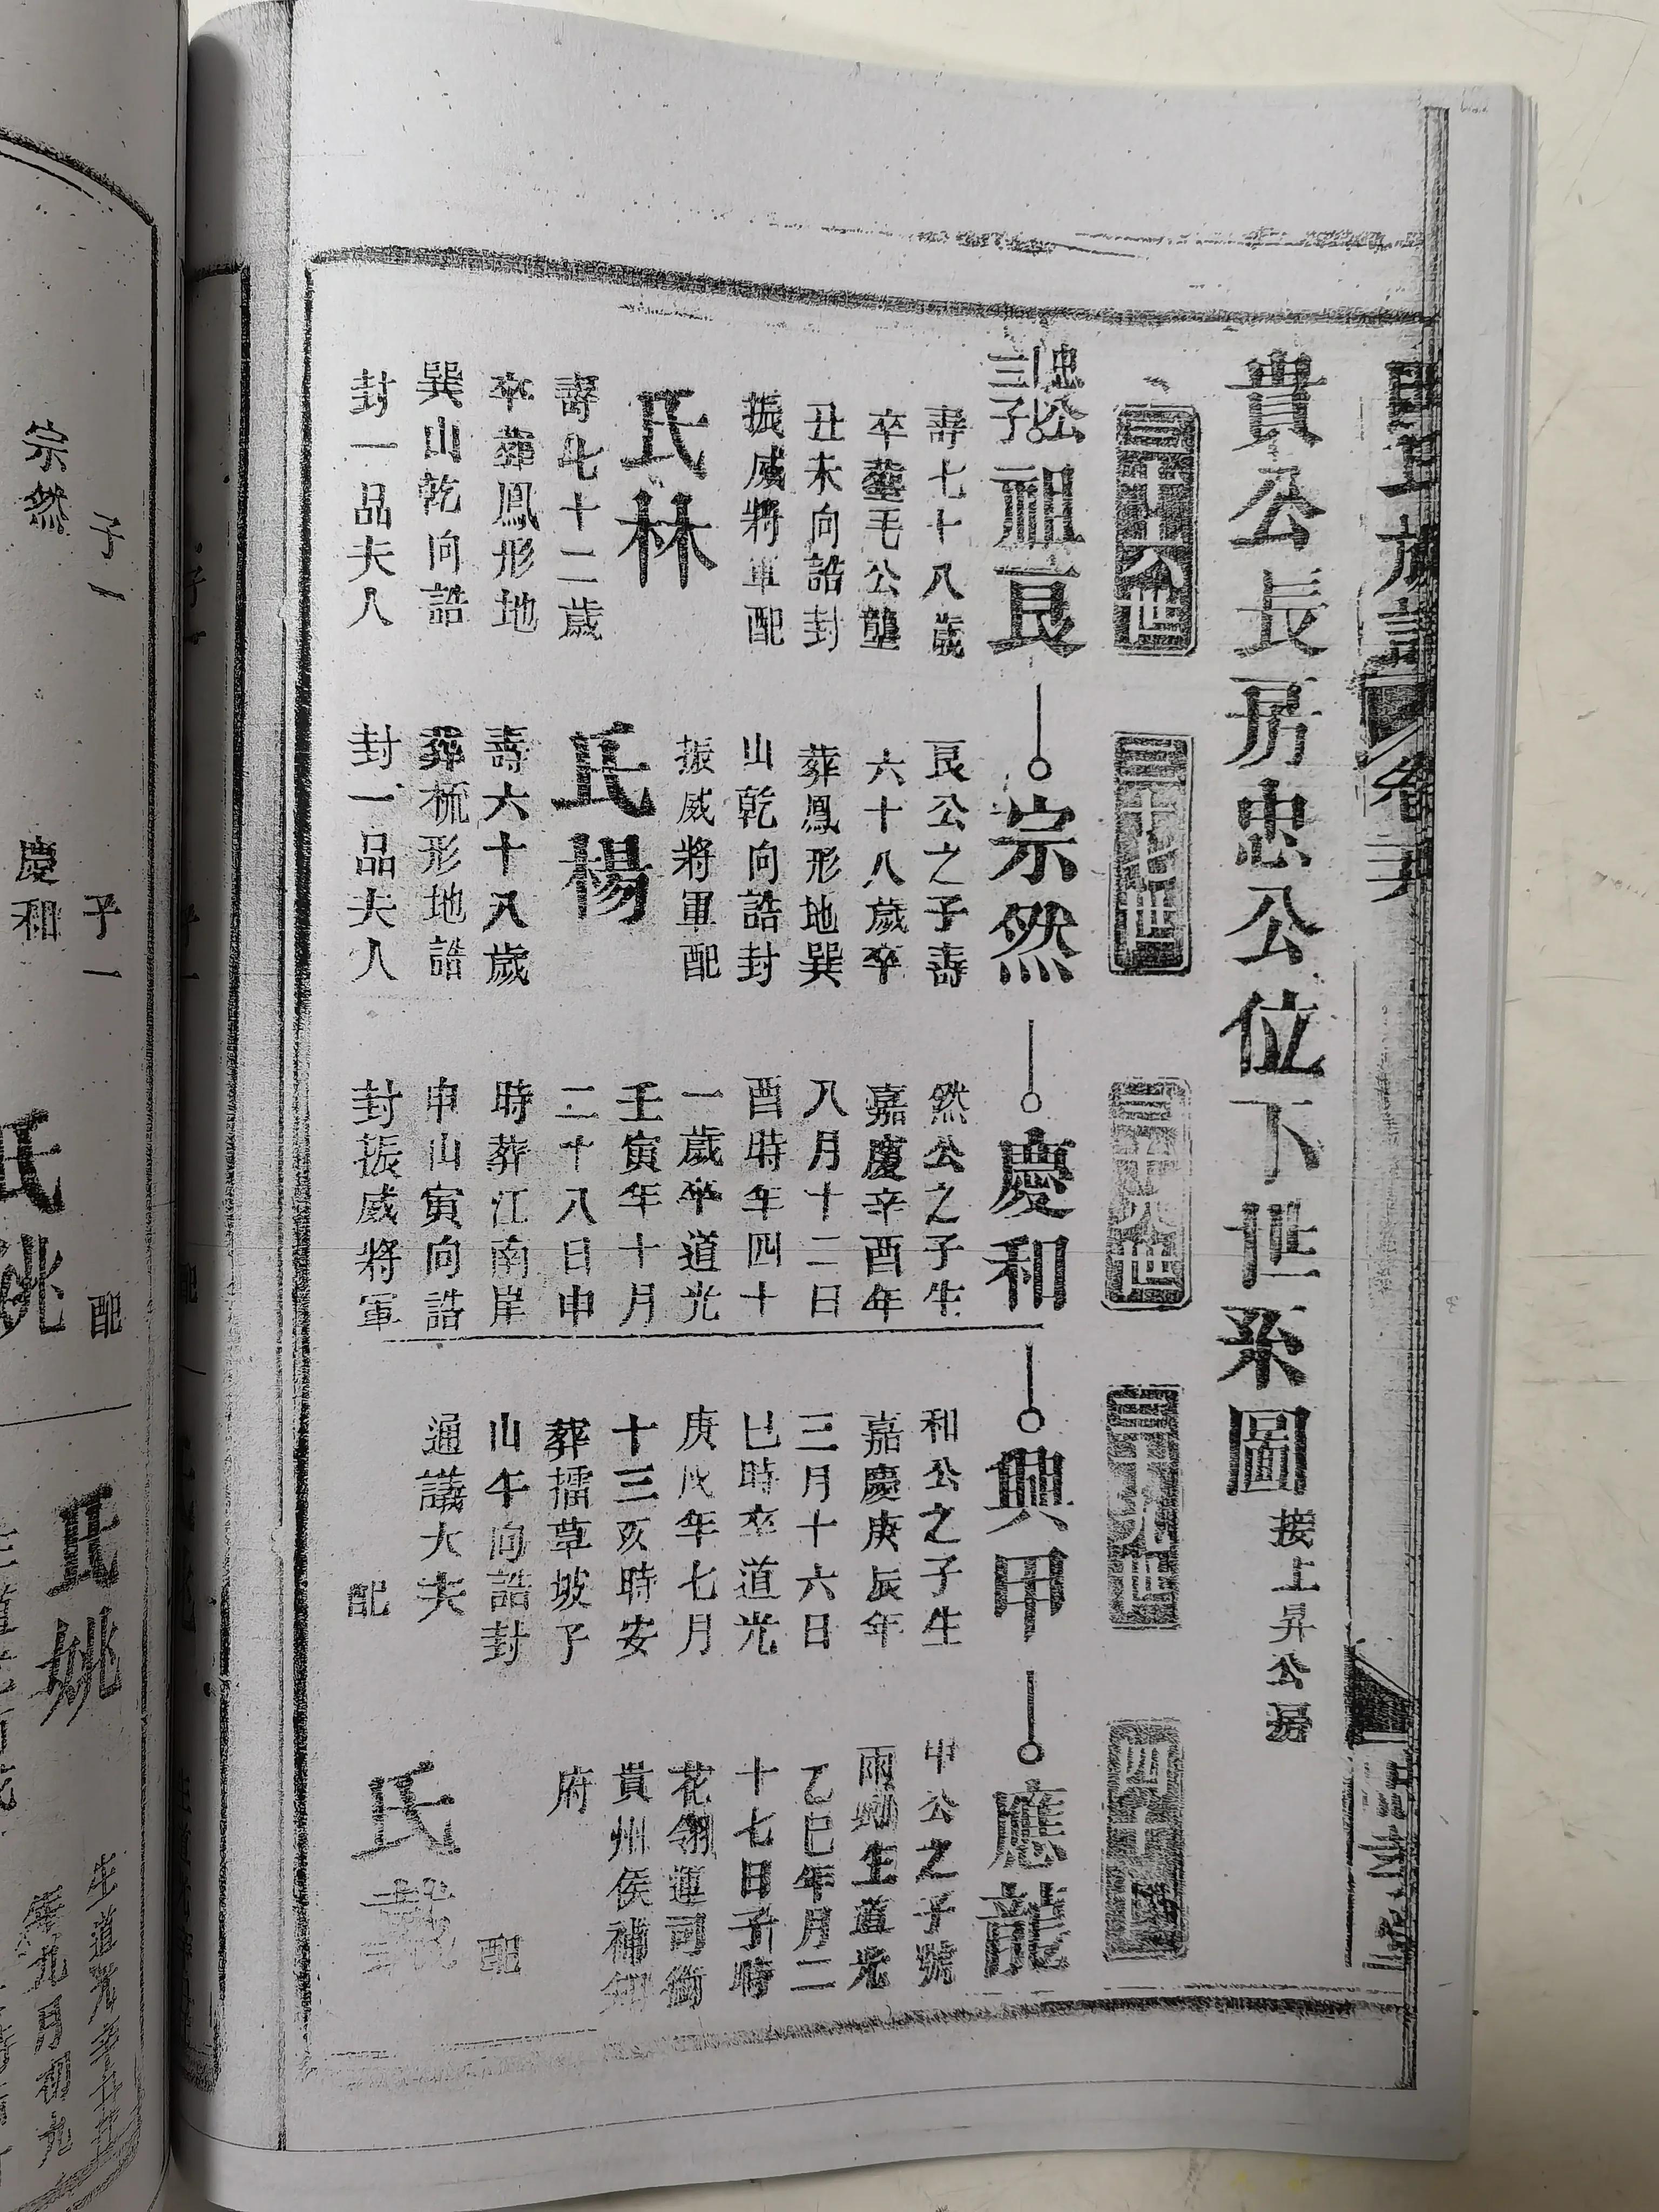 貴公長房忠公位下世系圖 接上昇公房
三十六世
忠公
三子
祖艮
壽七十八歲
卒塟毛公壟
丑未向誥封
振威將軍配
氏林
壽七十二歲
卒葬鳳形地
巽山乾向誥
封一品夫人
三十七世
宗然
艮公之子壽
六十八歲卒
葬鳳形地巽
山乾向誥封
振威將軍配
氏楊
壽六十八歲
葬梳形地誥
封一品夫人
三十八世
慶和
然公之子生
嘉慶辛酉年
八月十二日
酉時年四十
一歲卒道光
壬寅年十月
二十八日申
時葬江南岸
申山寅向誥
封振威將軍
三十九世
興甲
和公之子生
嘉慶庚辰年
三月十六日
巳時卒道光
庚戌年七月
十三亥時安
葬擂草坡子
山午向誥封
通議大夫
配
四十世
應龍
甲公之子號
雨生道光
乙巳年月二
十七日子時
花翎運司銜
貴州侯補知
府
配
氏戴
子一
宗然
子一
慶和
配
氏姚
氏姚
生道光
年九月初九